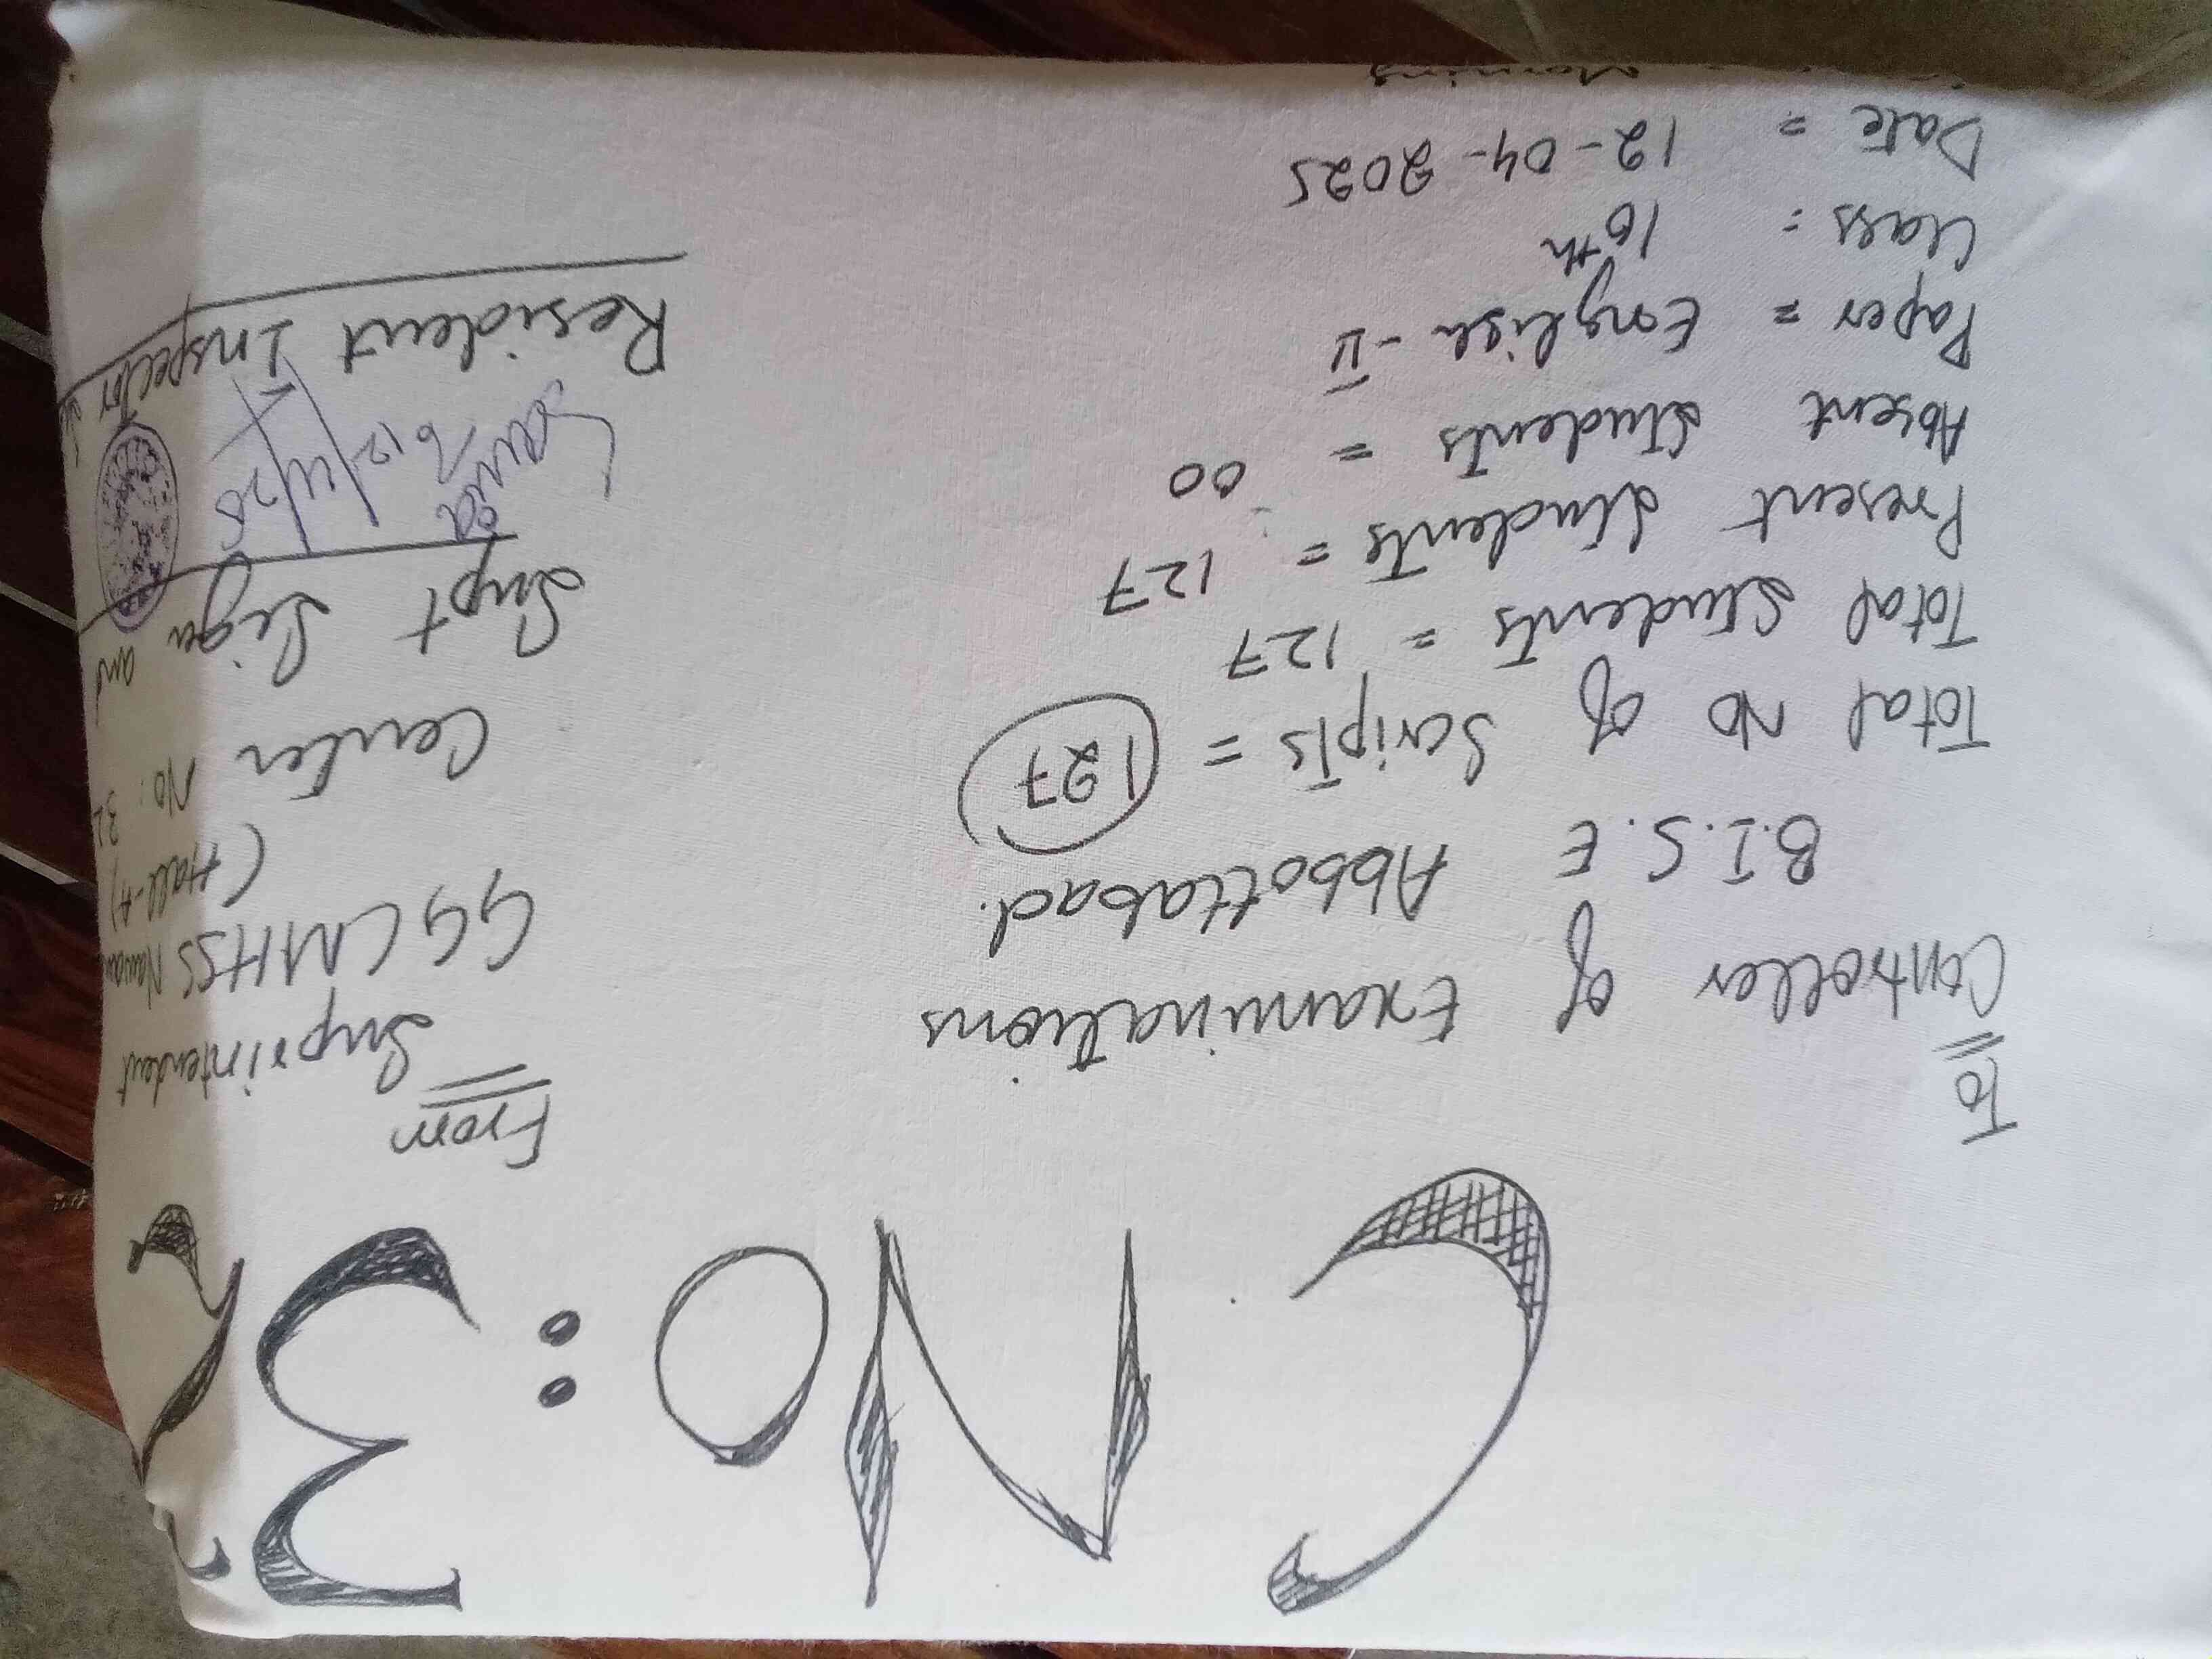 C No: 3
To
Controller of Examinations
B.I.S.E Abbottabad.
Total No of Scripts = 127
Total Students = 127
Present Students = 127
Absent Students = 00
Paper = English - II
Class: 10th
Date = 12-04-2025
Morning
From
Suprintendent
GGCMHSS
(Hall-A)
Center No: 32
Supt Sign and
12/4/25
Resident Inspector